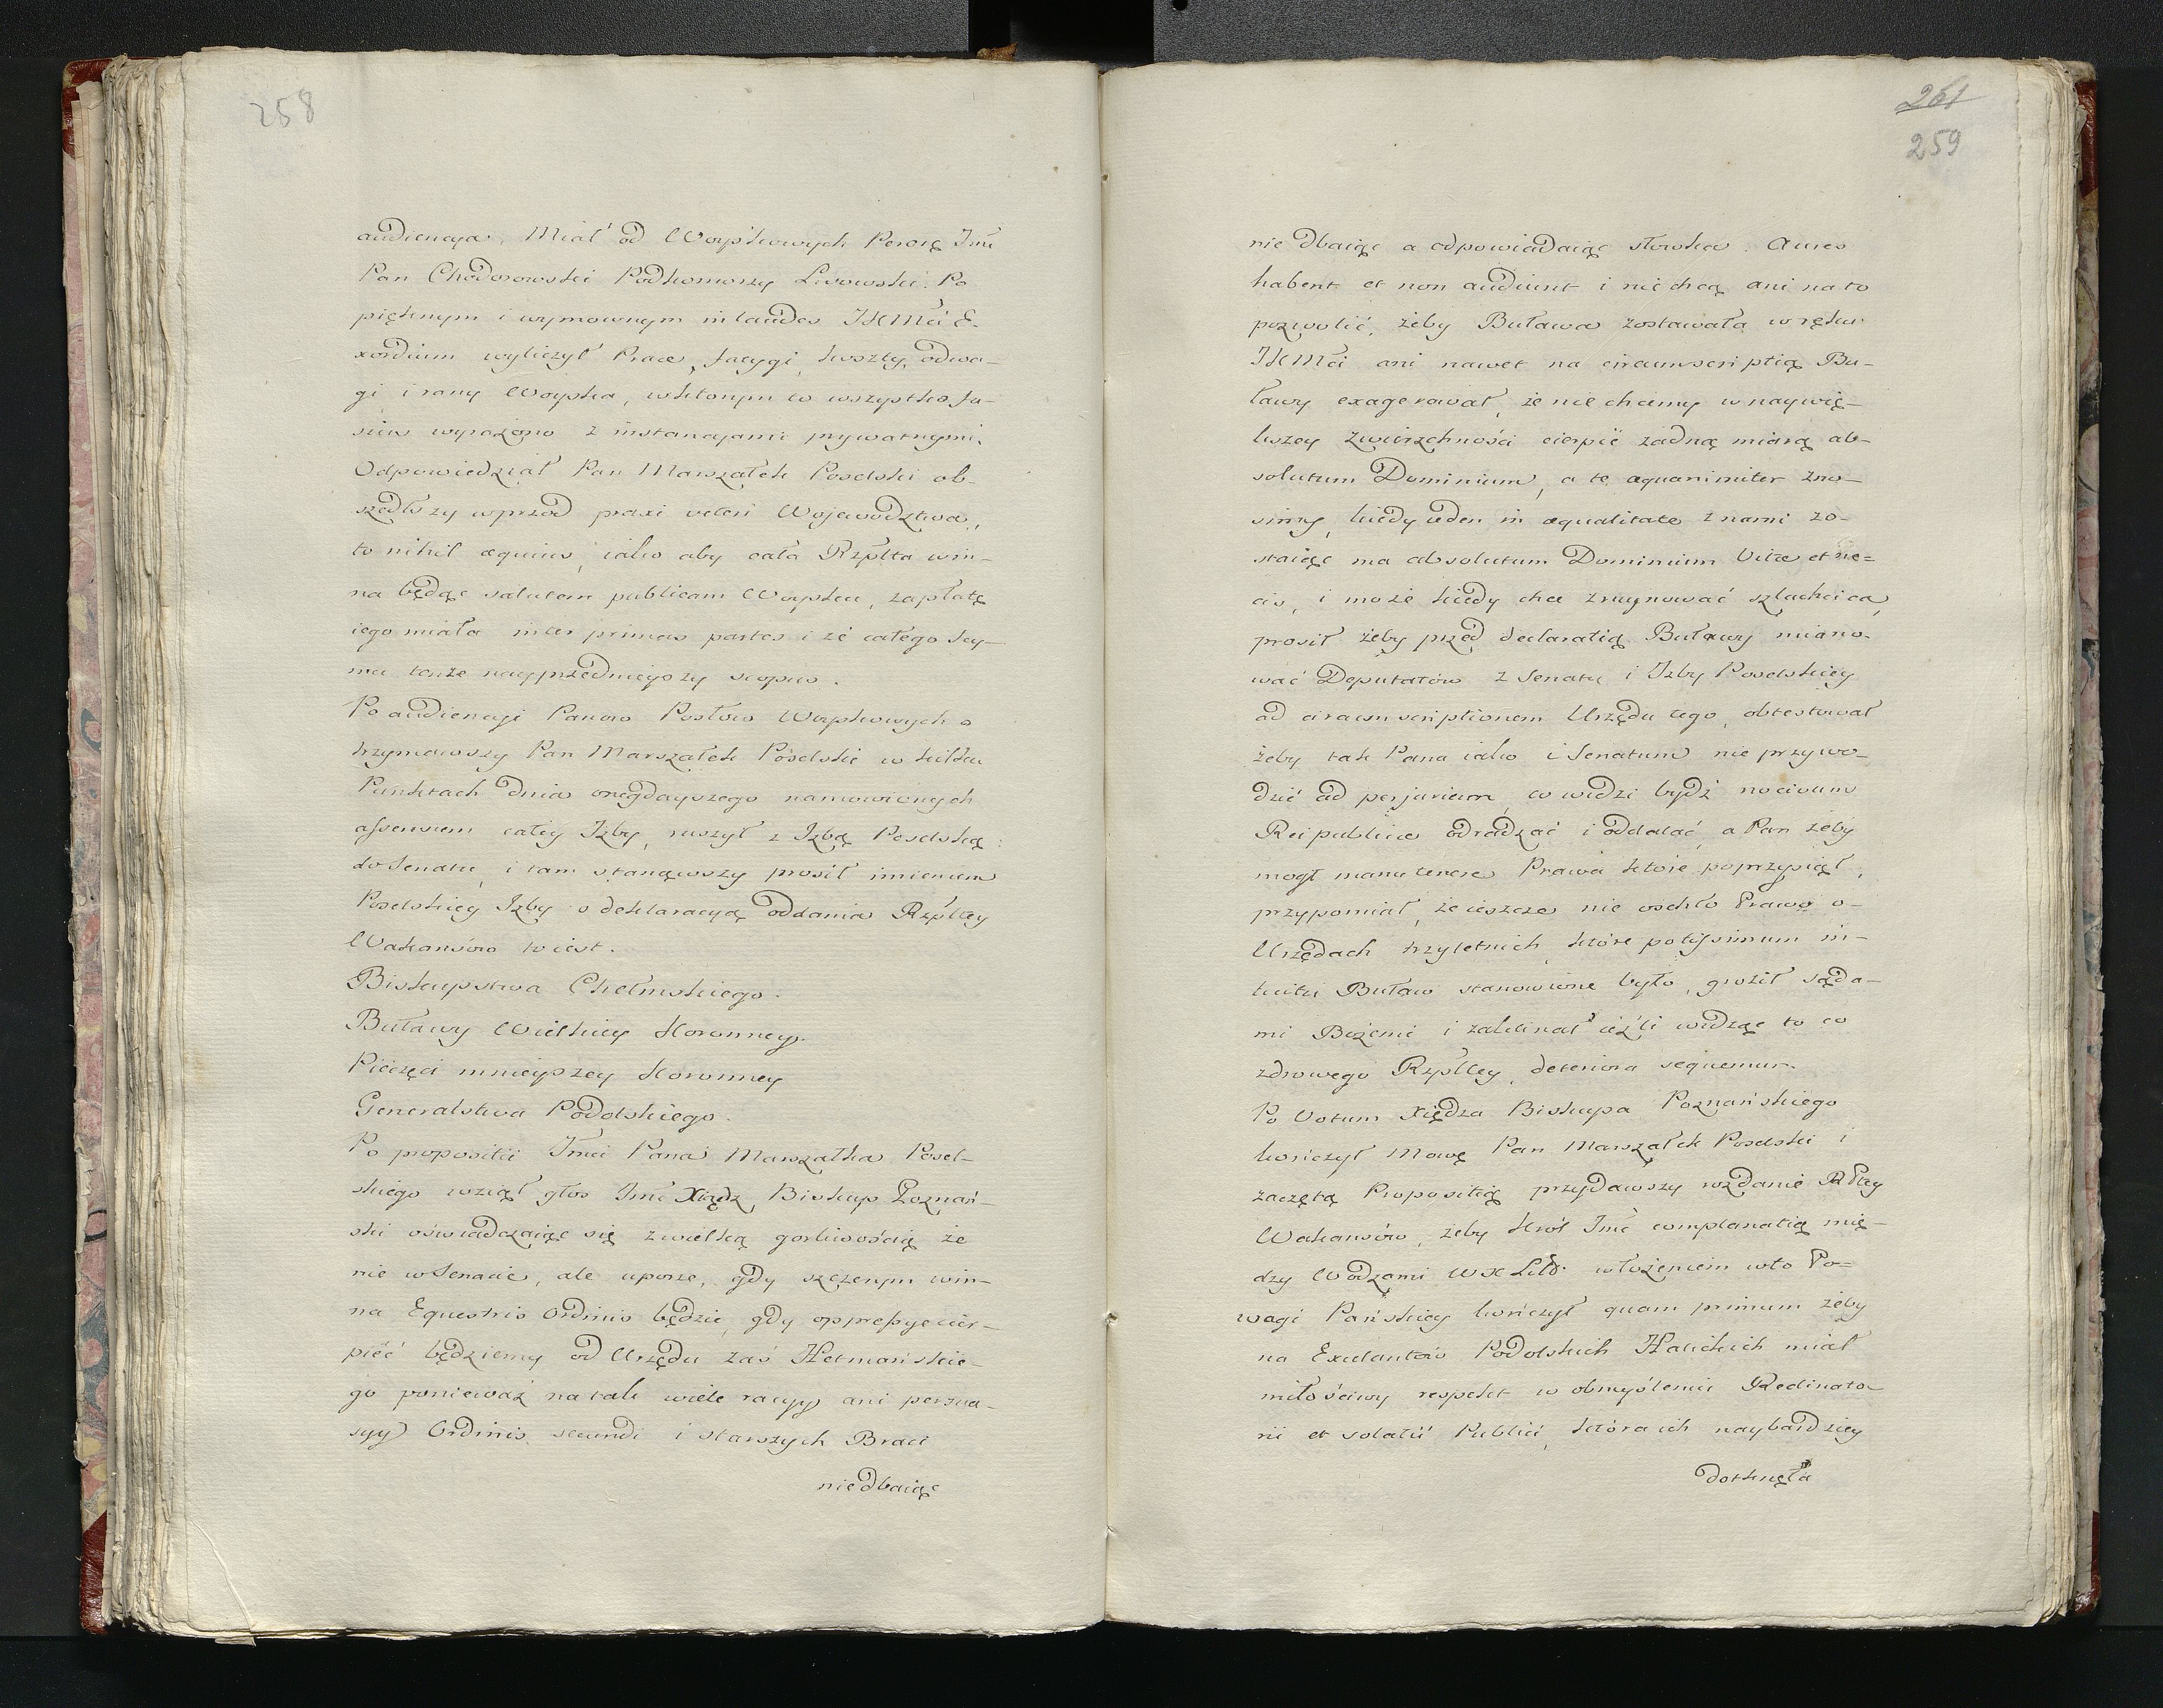 258
audiencya. Miał od Woyskowych Perorę Jmć
Pan Chodorowski Podkomorzy Lwowski. Po
pięknym i wymownym in laudes JKMći E-
xordium wyliczył Prace, fatygi, koszty, odwa-
gi i rany Woyska, w ktorym to wszystko fu-
sius wyrażono z instancyami prywatnymi.
Odpowiedział Pan Marszałek Poselski ob-
szedłszy wprzod praxi veteri Wojewodztwa,
to nihil æquius, iako aby cała Rzplta win-
na będąc salutem publicam Woysku, zapłatę
iego miała inter primas partes i że całego Sey-
mu tenże nayprzednieyszy scopus.
Po audiencyi Panow Posłow Woyskowych o
trzymawszy Pan Marszałek Poselski w kilku
Punktach dnia onegdayszego namowionych
assensum całey Izby, ruszył z Izbą Poselską
do Senatu, i tam stanąwszy prosił imieniem
Poselskiey Izby o deklaracyą oddania Rzpltey
Wakansow to iest.
Biskupstwa Chełmskiego.
Buławy Wielkiey Koronney.
Pieczęci mnieyszey Koronney
Generalstwa Podolskiego.
Po propositii Jmći Pana Marszałka Posel-
skiego wziął głos Jmć Xiądz Biskup Poznań-
ski oświadczaiąc się z wielką gorliwością że
nie w Senacie, ale uporze, gdy szczerym win-
na Equestris Ordinis będzie, gdy oppressye cier-
pieć będziemy od Urzędu zaś Hetmańskie-
go ponieważ na tak wiele racyy ani perswa-
zyy Ordinis secundi i starszych Braci
nie dbaiąc
261
259
nie dbaiąc a odpowiadaiąc słowka. Aures
habent et non audiunt i nie chcą ani na to
pozwolić, żeby Buława zostawała w ręku
JKMći ani nawet na circumscriptią Bu-
ławy exagerował, że nie chcemy w naywię-
kszey zwierzchności cierpić żadną miarą ab-
solutum Dominium, a te æquanimiter zno-
simy, kiedy ieden in æqualitate z nami zo-
staiąc ma absolutum Dominium Vitæ et ne-
cis, i może kiedy chce zruynować szlachcica,
prosił żeby przed declaratią Buławy miano-
wać Deputatow z Senatu i Izby Poselskiey
ad circumscriptionem Urzędu tego, obtestował
żeby tak Pana iako i Senatum nie przywo-
dzić ad perjurium, co widzi bydź nocivum
Reipublicæ odradzać i oddalać, a Pan żeby
mogł manu tenere Prawa ktore poprzysiągł,
przypomiał, że ieszcze nie oschło Prawo o-
Urzędach trzyletnich, które potissimum in-
tuitu Buław stanowione było, groził sąda-
mi Bożemi i zaklinał ieżli widząc to co
zdrowego Rzpltey, deteriora sequemur.
Po Votum Xiędza Biskupa Poznańskiego
kończył Mowę Pan Marszałek Poselski i
zaczętą Propositią przydawszy rozdanie RPtey
Wakansów, żeby Król Jmć complanatią mię-
dzy Wodzami WXLitt. włożeniem w to Po-
wagi Pańskiey kończył quam primum żeby
na Exulantów Podolskich Halickich miał
miłościwy respekt w obmyśleniu Reclinato-
rii et solatii Publici, która ich naybardziey
dotknęła